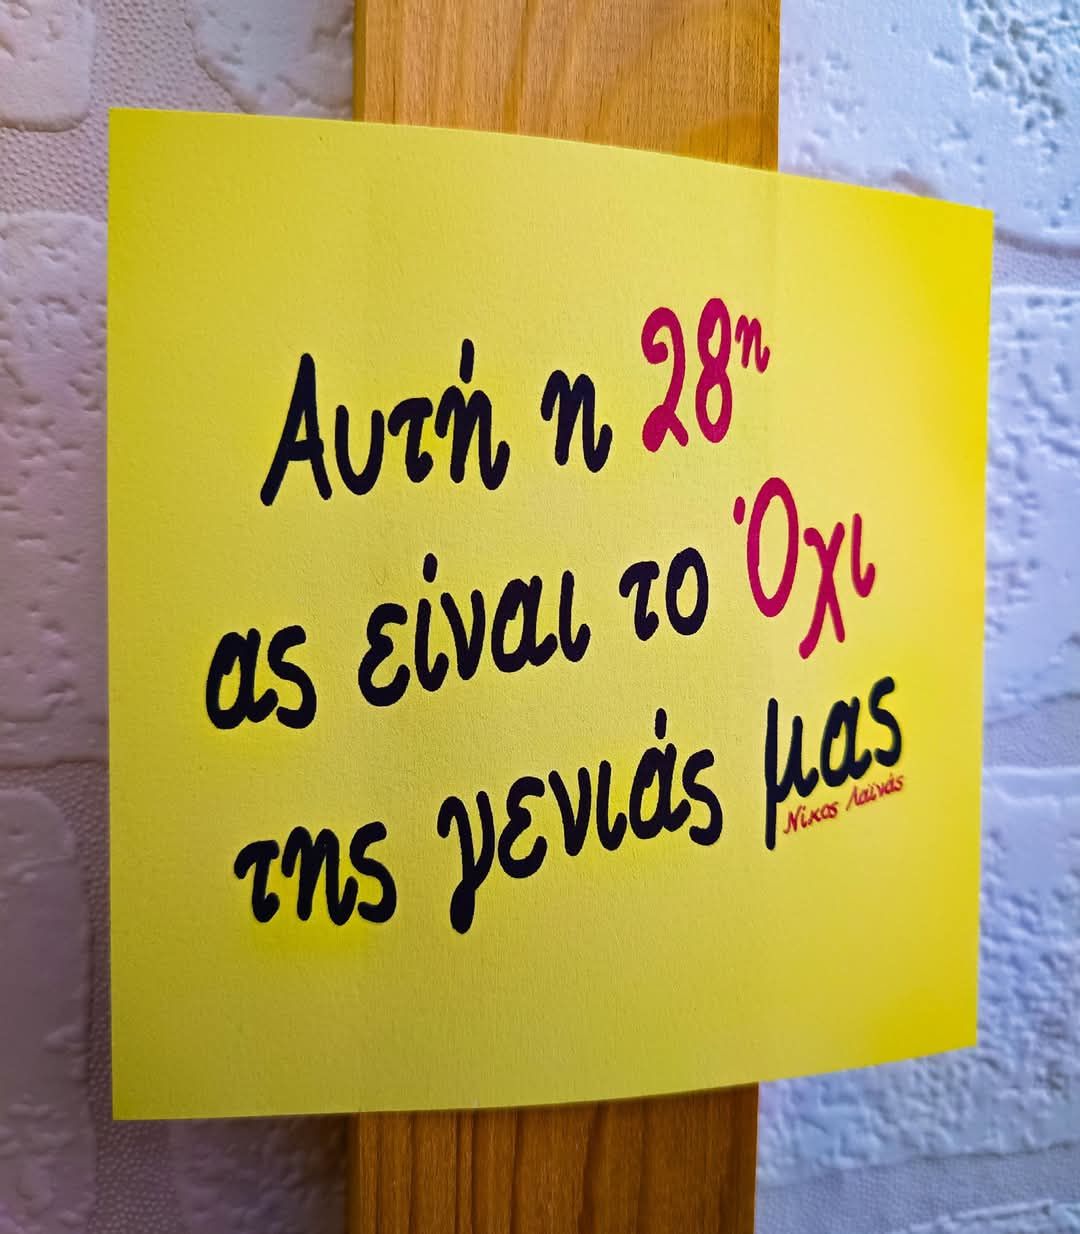 Αυτή η 28η
ας είναι το Όχι
της γενιάς μας
Νίκος Λαϊνάς